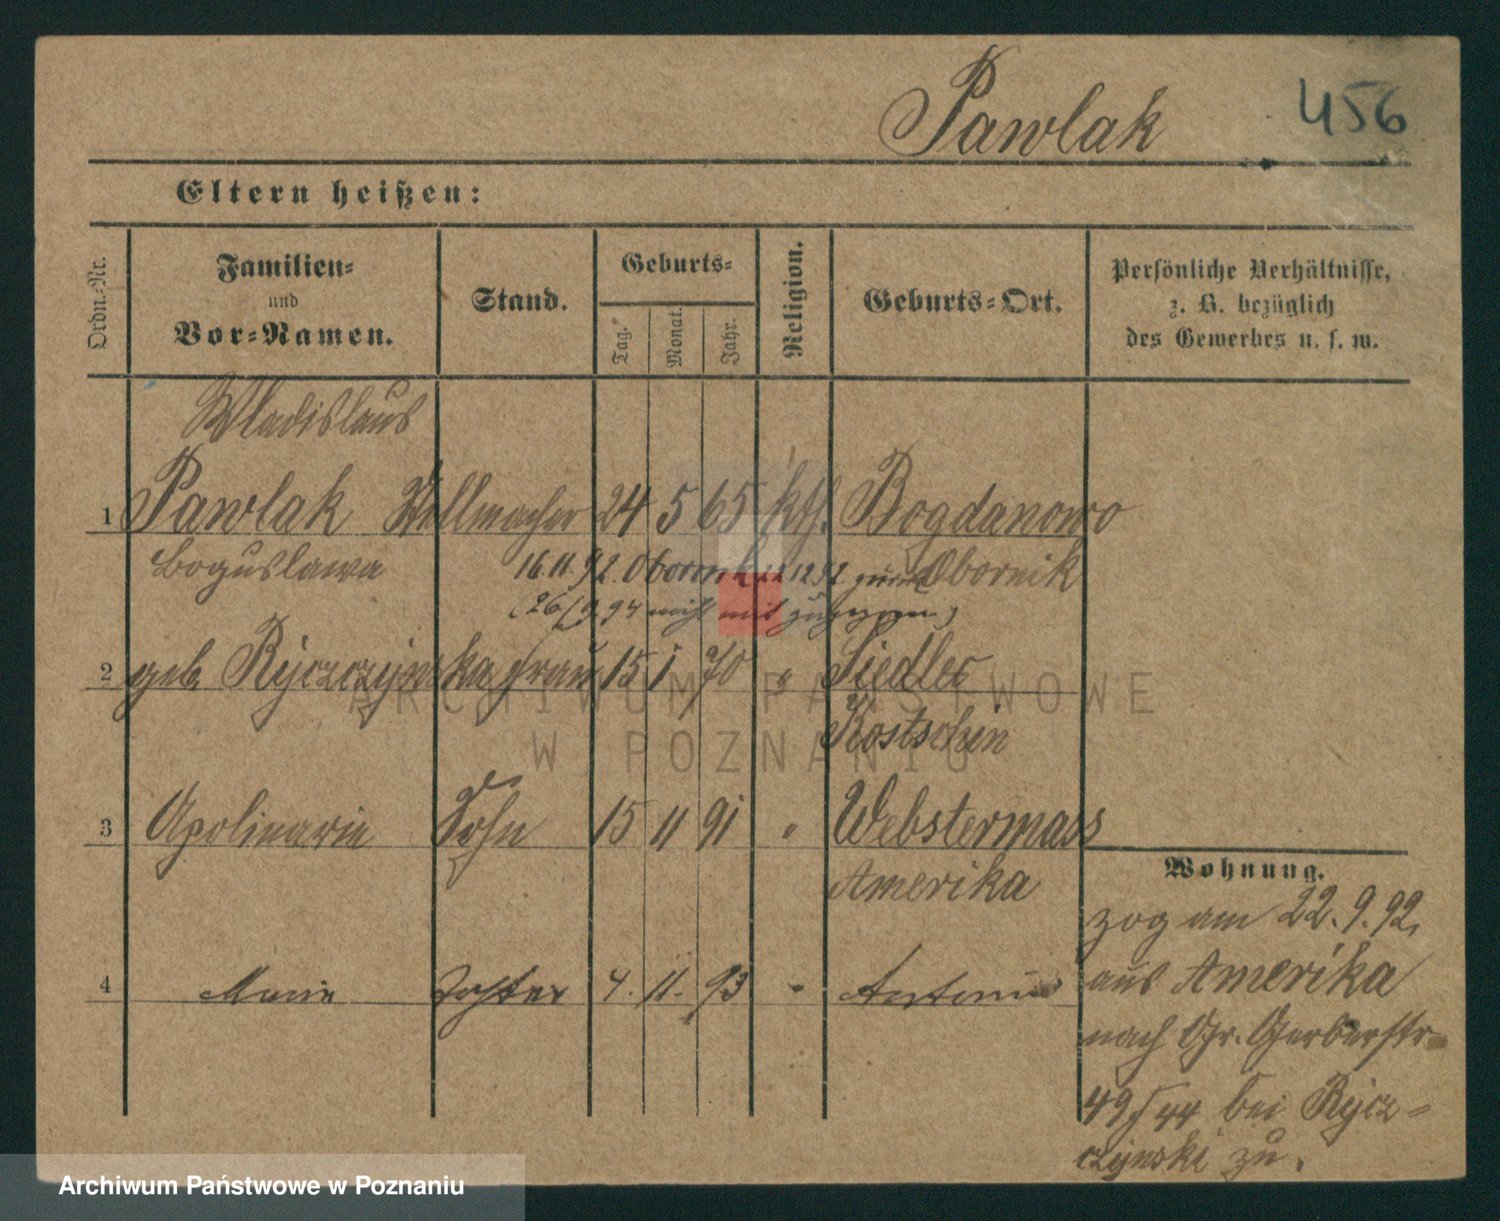 Pawlak 456
Eltern heißen:
Ordn.-Nr.
Familien-
und
Vor-Namen.
Stand.
Geburts-
Tag.
Monat.
Jahr.
Religion.
Geburts-Ort.
Persönliche Verhältnisse,
z. B. bezüglich
des Gewerbes u. s. w.
Wladislaus
1 Pawlak Stellmacher 24 5 65 kth. Bogdanowo
Boguslawa 16.11.92. Obornik 22 12 92 zurück Obornik
(26/9.94 nicht mit zugezogen)
2 geb. Ryczczynska Frau 15 1 70 " Siedlec
Kostschin
3 Apolinarin Sohn 15 11 91 " Webstermass
Amerika
4 Marie Tochter 4. 11. 93 "
Wohnung.
zog am 22.9.92.
aus Amerika
nach Gr. Gerberstr.
49/44 bei Rycz-
czynski zu.
ARCHIWUM PAŃSTWOWE
W POZNANIU
Archiwum Państwowe w Poznaniu